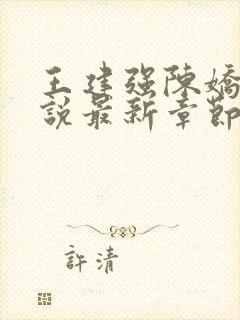 王建强陳嬌
說最新章節
許清